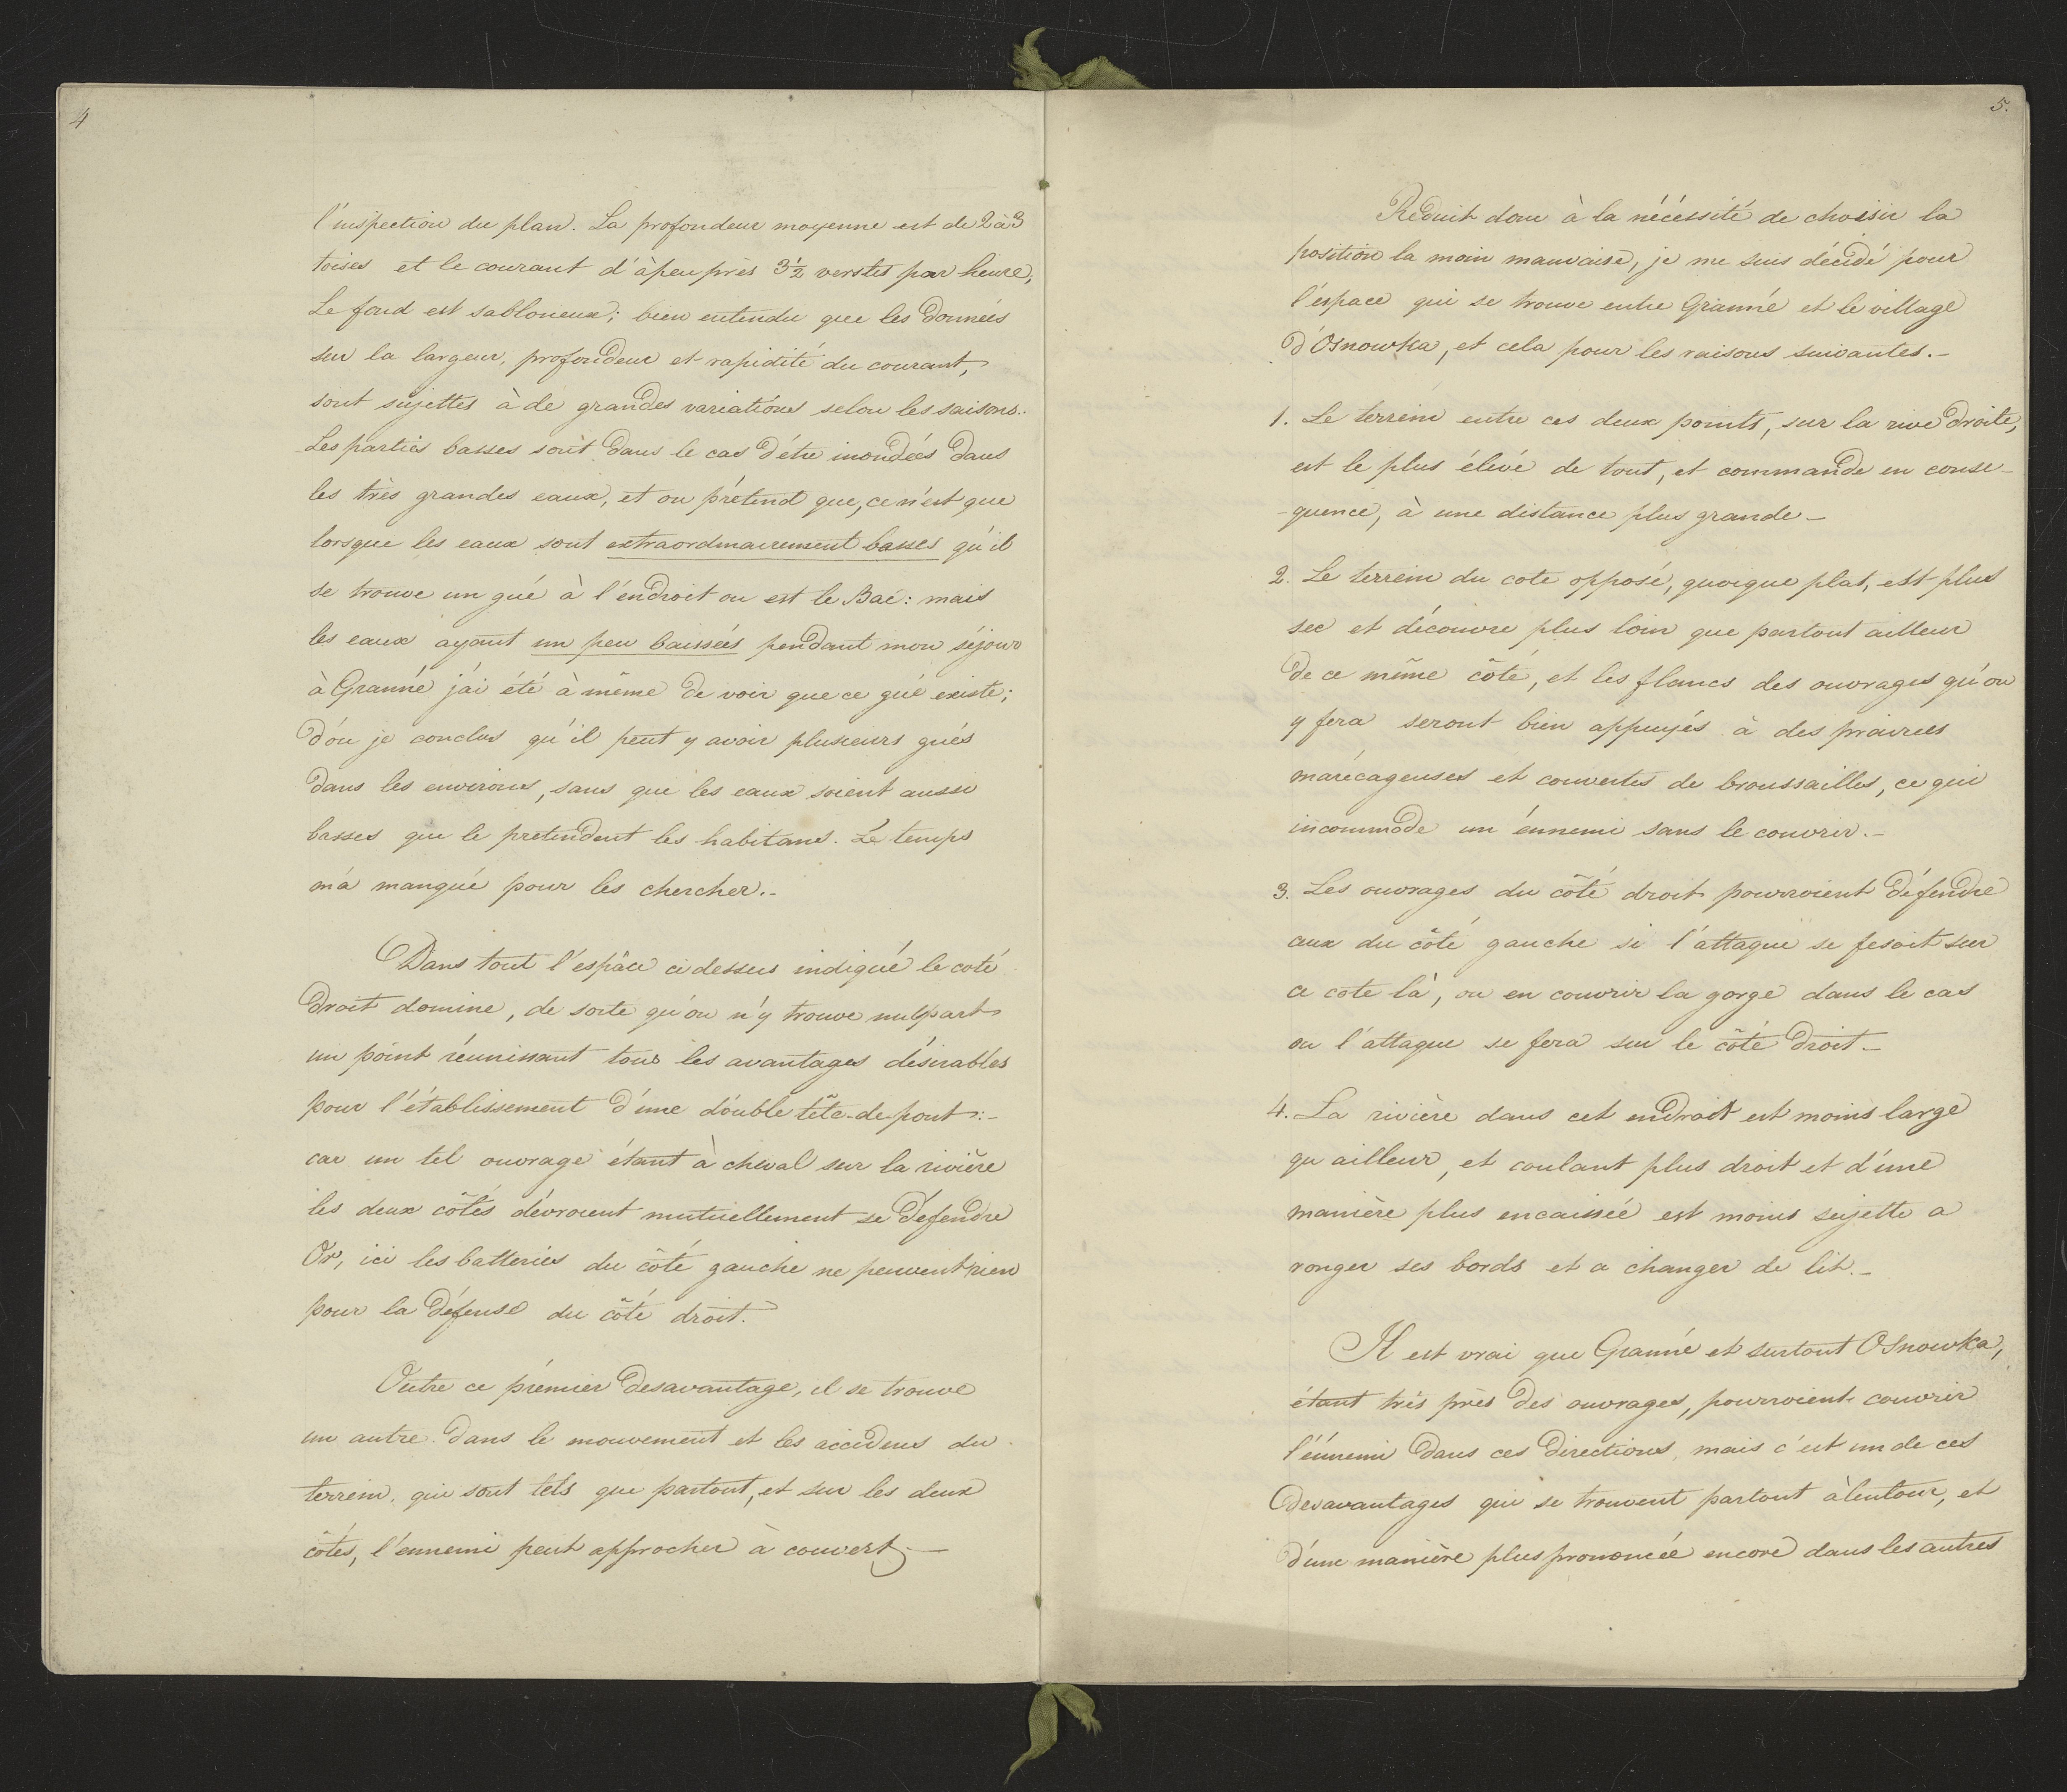 4
l'inspection du plan. La profondeur moyenne est de 2 à 3
toises et le courant d'àpeuprès 3½ verstes par heure;
Le fond est sabloneux; bien entendu que les données
sur la largeur, profondeur et rapidité du courant,
sont sujettes à de grandes variations selon les saisons.
Les parties basses sont dans le cas d'être inondées dans
les très grandes eaux, et on prétend que, ce n'est que
lorsque les eaux sont extraordinairement basses qu'il
se trouve un gué à l'endroit ou est le Bac: mais
les eaux ayant un peu baissées pendant mon séjour
à Granné j'ai été à même de voir que ce gué existe;
d'ou je conclus qu'il peut y avoir plusieurs gués
dans les environs, sans que les eaux soient aussi
basses que le pretendent les habitans. Le temps
m'a manqué pour les chercher.-
Dans tout l'espâce ci dessus indiqué le coté
droit domine, de sorte qu'on n'y trouve nulpart
un point réunissant tous les avantages désirables
pour l'établissement d'une double tête-de-pont:-
car un tel ouvrage étant à cheval sur la rivière
les deux côtés dévroient mutuellement se défendre
Or, ici les batteries du côté gauche ne peuvent rien
pour la défense du côté droit.
Outre ce prémier desavantage, il se trouve
un autre dans le mouvement et les accidens du
terrein, qui sont tels que partout, et sur les deux
côtés, l'ennemi peut approcher à couvert;—
5.
Réduit donc à la nécéssité de choisir la
position la moin mauvaise, je me suis décidé pour
l'espace qui se trouve entre Granné et le village
d'Osnowka, et cela pour les raisons suivantes.-
1. Le terrein entre ces deux points, sur la rive droite,
est le plus élevé de tout, et commande en conse-
-quence, à une distance plus grande-
2. Le terrein du cote opposé, quoique plat, est plus
sec et découvre plus loin que partout ailleur
de ce même côté, et les flancs des ouvrages qu'on
y fera seront bien appuyés à des prairies
marécageuses et couvertes de broussailles, ce qui
incommode un énnemi sans le couvrir.-
3. Les ouvrages du côté droit pourroient défendre
aux du côté gauche si l'attaque se fesoit sur
ce cote là, ou en couvrir la gorge dans le cas
ou l'attaque se fera sur le côté droit-
4. La rivière dans cet endroit est moins large
qu'ailleur, et coulant plus droit et d'une
manière plus encaissée est moins sujette a
ronger ses bords et a changer de lit.-
Il est vrai que Granné et surtout Osnowka,
étant très près des ouvrages, pourroient couvrir
l'énnemi dans ces directions, mais c'est un de ces
desavantages qui se trouvent partout àlentour, et
d'une manière plus prononcée encore dans les autres